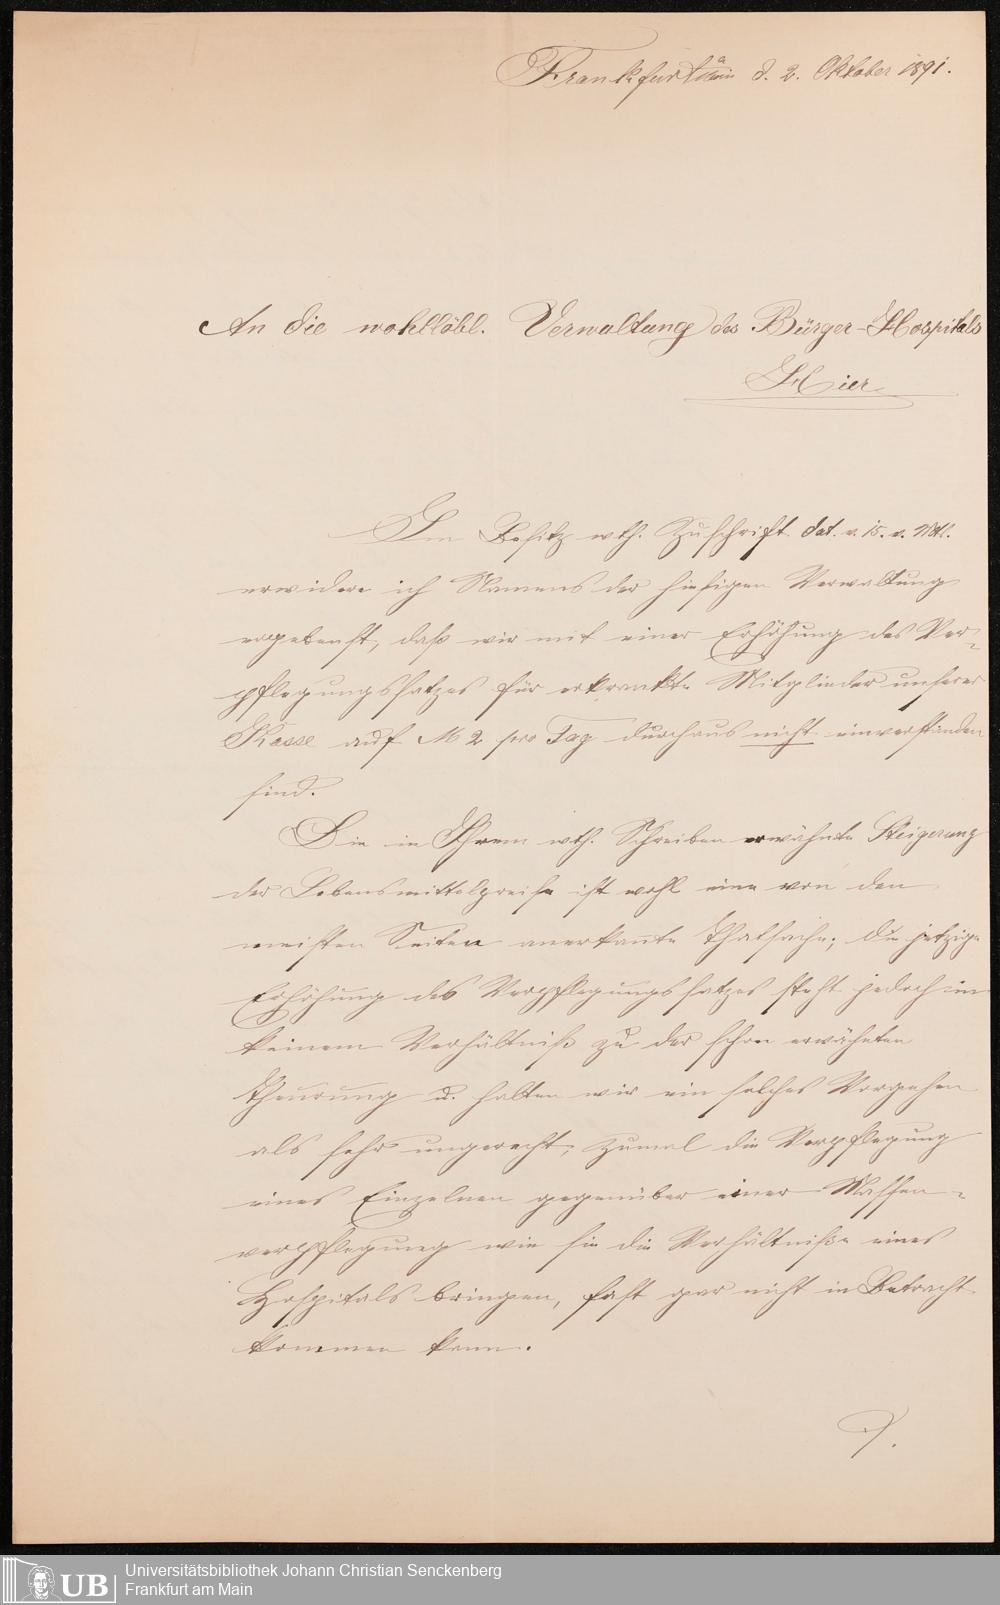 Frankfurt a/Main d. 2. Oktober 1891.
An die wohllöbl. Verwaltung des Bürger-Hospitals
Hier
Im Besitz wth. Zuschrift dat. v. 15. v. Mtl.
erwidere ich Namens der hiesigen Verwaltung
ergebenst, daß wir mit einer Erhöhung des Ver-
pflegungssatzes für erkrankte Mitglieder unserer
Kasse auf M 2 pro Tag durchaus nicht einverstanden
sind.
Die in Ihrem wth. Schreiben erwähnte Steigerung
der Lebensmittelpreise ist wohl eine von den
meisten Seiten anerkannte Thatsache; die jetzige
Erhöhung des Verpflegungssatzes steht jedoch in
keinem Verhältniß zu der schon erwähnten
Theuerung u. halten wir ein solches Vorgehen
als sehr ungerecht, zumal die Verpflegung
eines Einzelnen gegenüber einer Massen-
verpflegung wie sie die Verhältniße eines
Hospitals bringen, fast gar nicht in Betracht
kommen kann.
UB
Universitätsbibliothek Johann Christian Senckenberg
Frankfurt am Main